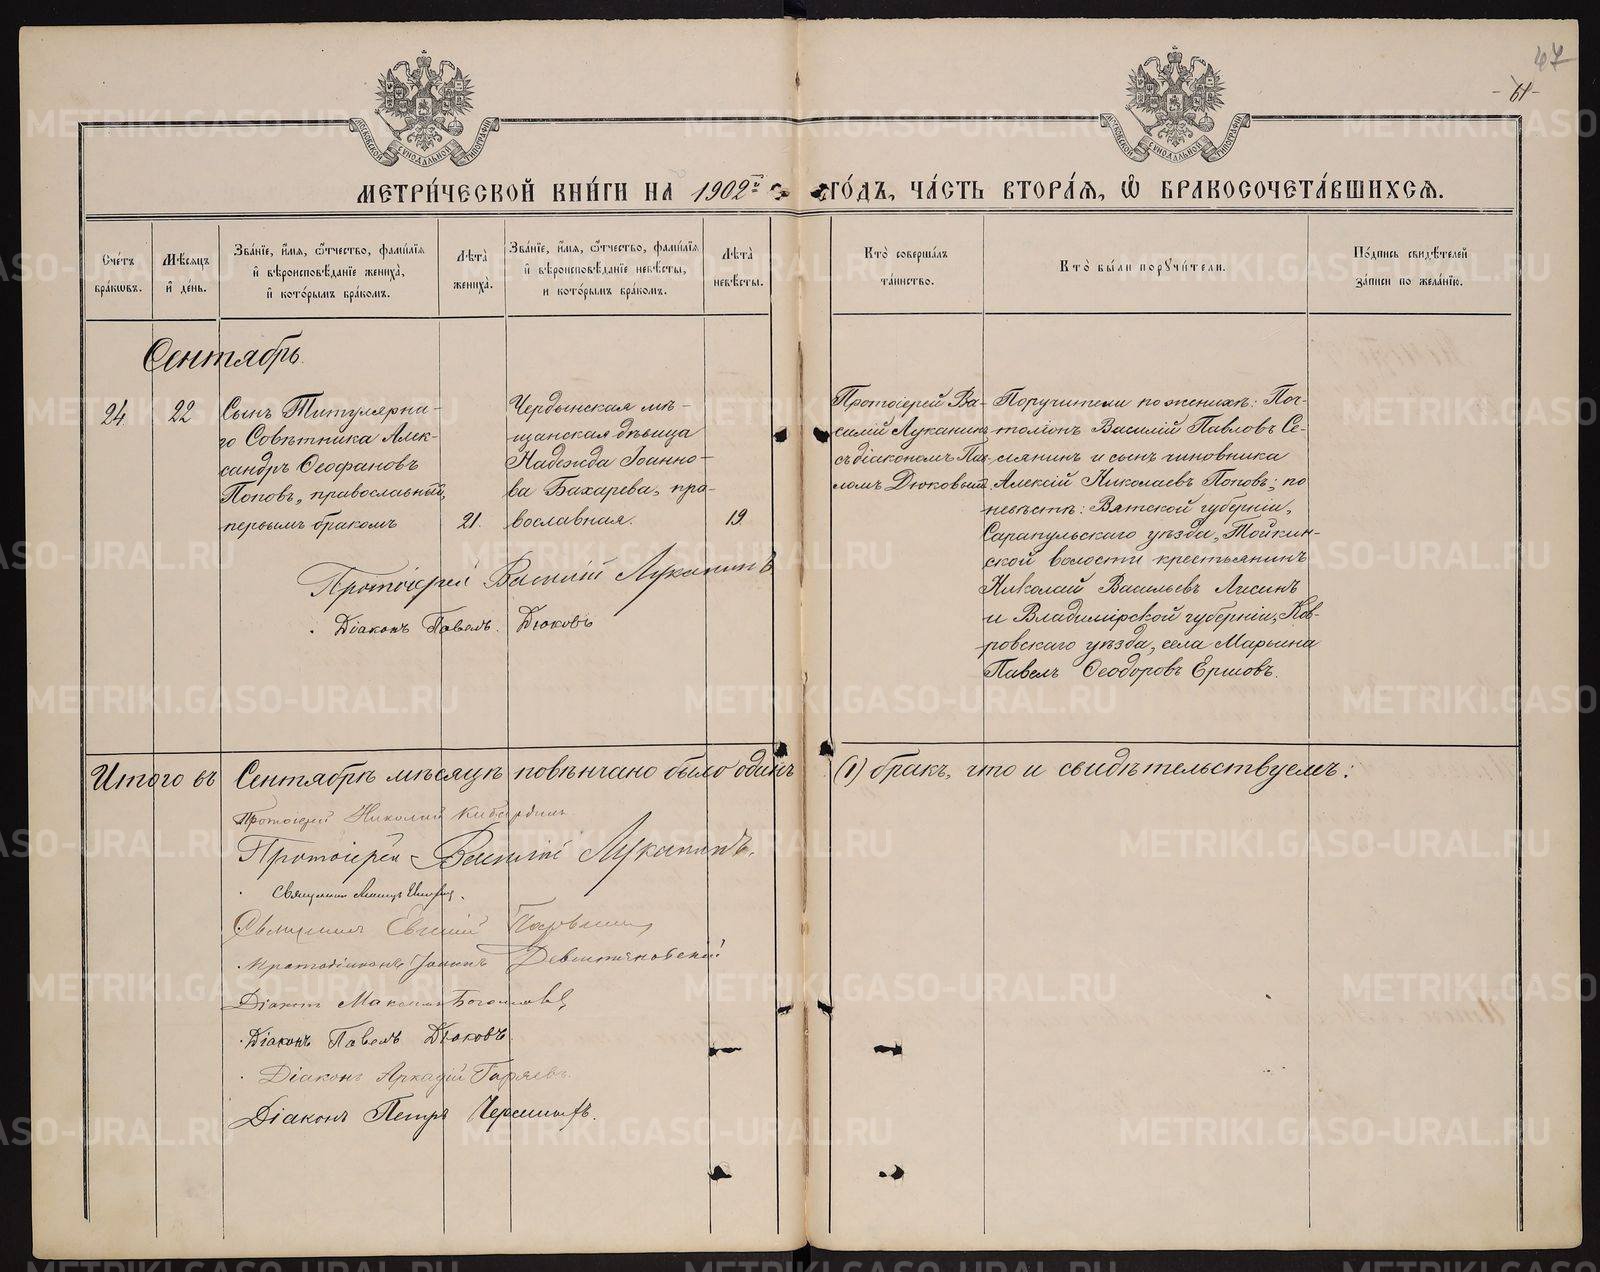 47
-61-
МОСКОВСКОЙ СѴНОДАЛЬНОЙ ТИПОГРАФІИ
МОСКОВСКОЙ СѴНОДАЛЬНОЙ ТИПОГРАФІИ
МЕТРИ́ЧЕСКОЙ КНИ́ГИ НА 1902 го́дъ, ча́сть втора́ѧ, ѽ бракосочета́вшихсѧ.
Сче́тъ
бра́кѡвъ.
Мѣ́сѧцъ
и҆ де́нь.
Зва́нїе, и҆́мѧ, ѻ҆́тчество, фами́лїѧ
и҆ вѣроисповѣ́данїе жениха̀,
и҆ кото́рымъ бра́комъ.
Лѣ́та
жениха̀.
Зва́нїе, и҆́мѧ, ѻ҆́тчество, фами́лїѧ
и҆ вѣроисповѣ́данїе невѣ́сты,
и кото́рымъ бра́комъ.
Лѣ́та
невѣ́сты.
Кто̀ соверша́лъ
та́инство.
Кто̀ бы́ли порꙋчи́тели.
По́дпись свидѣ́телей
за́писи по жела́нїю.
Сентябрь
24
22
Сынъ Титулярна-
го Совѣтника Алек-
сандръ Ѳеофановъ
Поповъ, православный,
первымъ бракомъ
21.
Чердынская мѣ-
щанская дѣвица
Надежда Іоанно-
ва Бахарева, пра-
вославная.
19.
Протоіерей Ва-
силій Луканинъ
съ діакономъ Пав-
ломъ Дюковымъ.
Поручители по женихѣ: Поч-
таліонъ Василій Павловъ Се-
лянинъ и сынъ чиновника
Алексій Николаевъ Поповъ; по
невѣстѣ: Вятской губерніи,
Сарапульскаго уѣзда, Тойкин-
ской волости крестьянинъ
Николай Васильевъ Лисинъ
и Владимірской губерніи, Ков-
ровскаго уѣзда, села Марьина
Павелъ Ѳеодоровъ Ершовъ.
Протоіерей Василій Луканинъ
Діаконъ Павелъ Дюковъ
Итого въ Сентябрѣ мѣсяцѣ повѣнчано было одинъ (1) бракъ, что и свидѣтельствуемъ:
Протоіерей Николай Кибардинъ
Протоіерей Василій Луканинъ.
Священникъ
Священникъ Евгеній
Протодіаконъ Іоаннъ Девятьяновскій
Діаконъ Максимъ Богомоловъ
Діаконъ Павелъ Дюковъ.
Діаконъ Аркадій Гаряевъ.
Діаконъ Петръ
METRIKI.GASO-URAL.RU